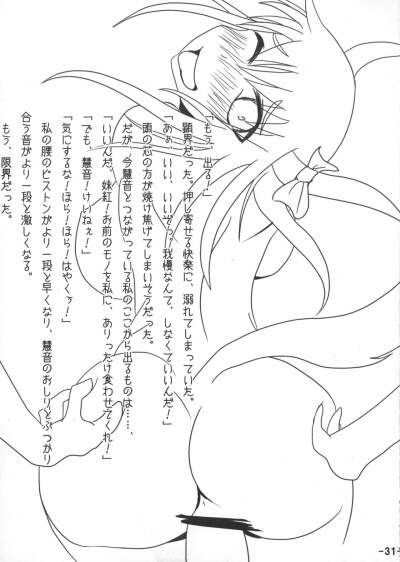 「もぅ、出る！」
顕界だった。押し寄せる快楽に、溺れてしまっていた。
「あぁ、いい、いいぞっ！我慢なんて、しなくていいんだ！」
頭の芯の方が焼け焦げてしまいそうだった。
だが、今慧音とつながっている私のここから出るものは……、
「いいんだ、妹紅！お前のモノを私に、ありったけ食わせてくれ！」
「でも、慧音！けいねぇ！」
「気にするな！ほら！ほら！はやくぅ！」
私の腰のピストンがより一段と早くなり、慧音のおしりとぶつかり
合う音がより一段と激しくなる。
もう、限界だった。
-31-